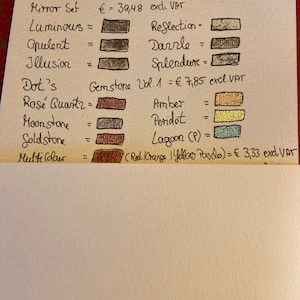 Mirror Set = € 39,48 excl. VAT
Luminous = Reflection =
Opulent = Dazzle =
Illusion = Splendure =
Dot's Gemstone Vol. 1 = € 7,85 excl. VAT
Rosé Quartz = Amber =
Moonstone = Peridot =
Goldstone = Lagoon (P) =
Multi Glaur = (Red / Orange / Yellow Possible) = € 3,33 excl. VAT